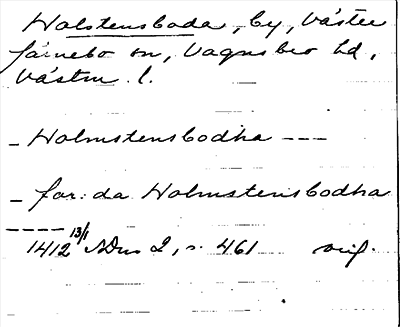 Holstensboda, by, Väster
färnebo sn, Vagnsbro hd,
Västm. l.
_ Holmstensbodha ---
_ for: da Holmstensbodha
---- 13/1
1412 SDns 2, s. 461 orig.